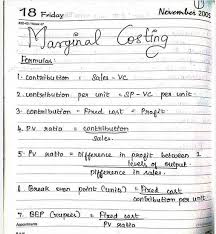 18 Friday
November 2005
Marginal Costing
Formulas:
1. contribution = Sales - VC
2. contribution per unit = SP - VC per unit
3. contribution - Fixed cost = Profit
4. PV ratio = contribution
Sales
5. PV ratio = Difference in profit between 2
levels of output
Difference in sales.
6. Break even point (units) = Fixed cost
contribution per unit
7. BEP (rupees) = Fixed cost
PV ratio
Appointments